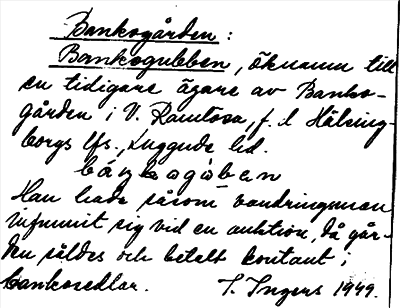 Bankogården:
Bankogubben, öknamn till
en tidigare ägare av Banko-
gården i V. Ramlösa, f. d. Hälsing-
borgs lfs., Luggude hd.
båŋkogúben
Han hade såsom vandringsman
infunnit sig vid en auktion, då går-
den såldes och betalt kontant i
bankosedlar. I. Ingers 1949.